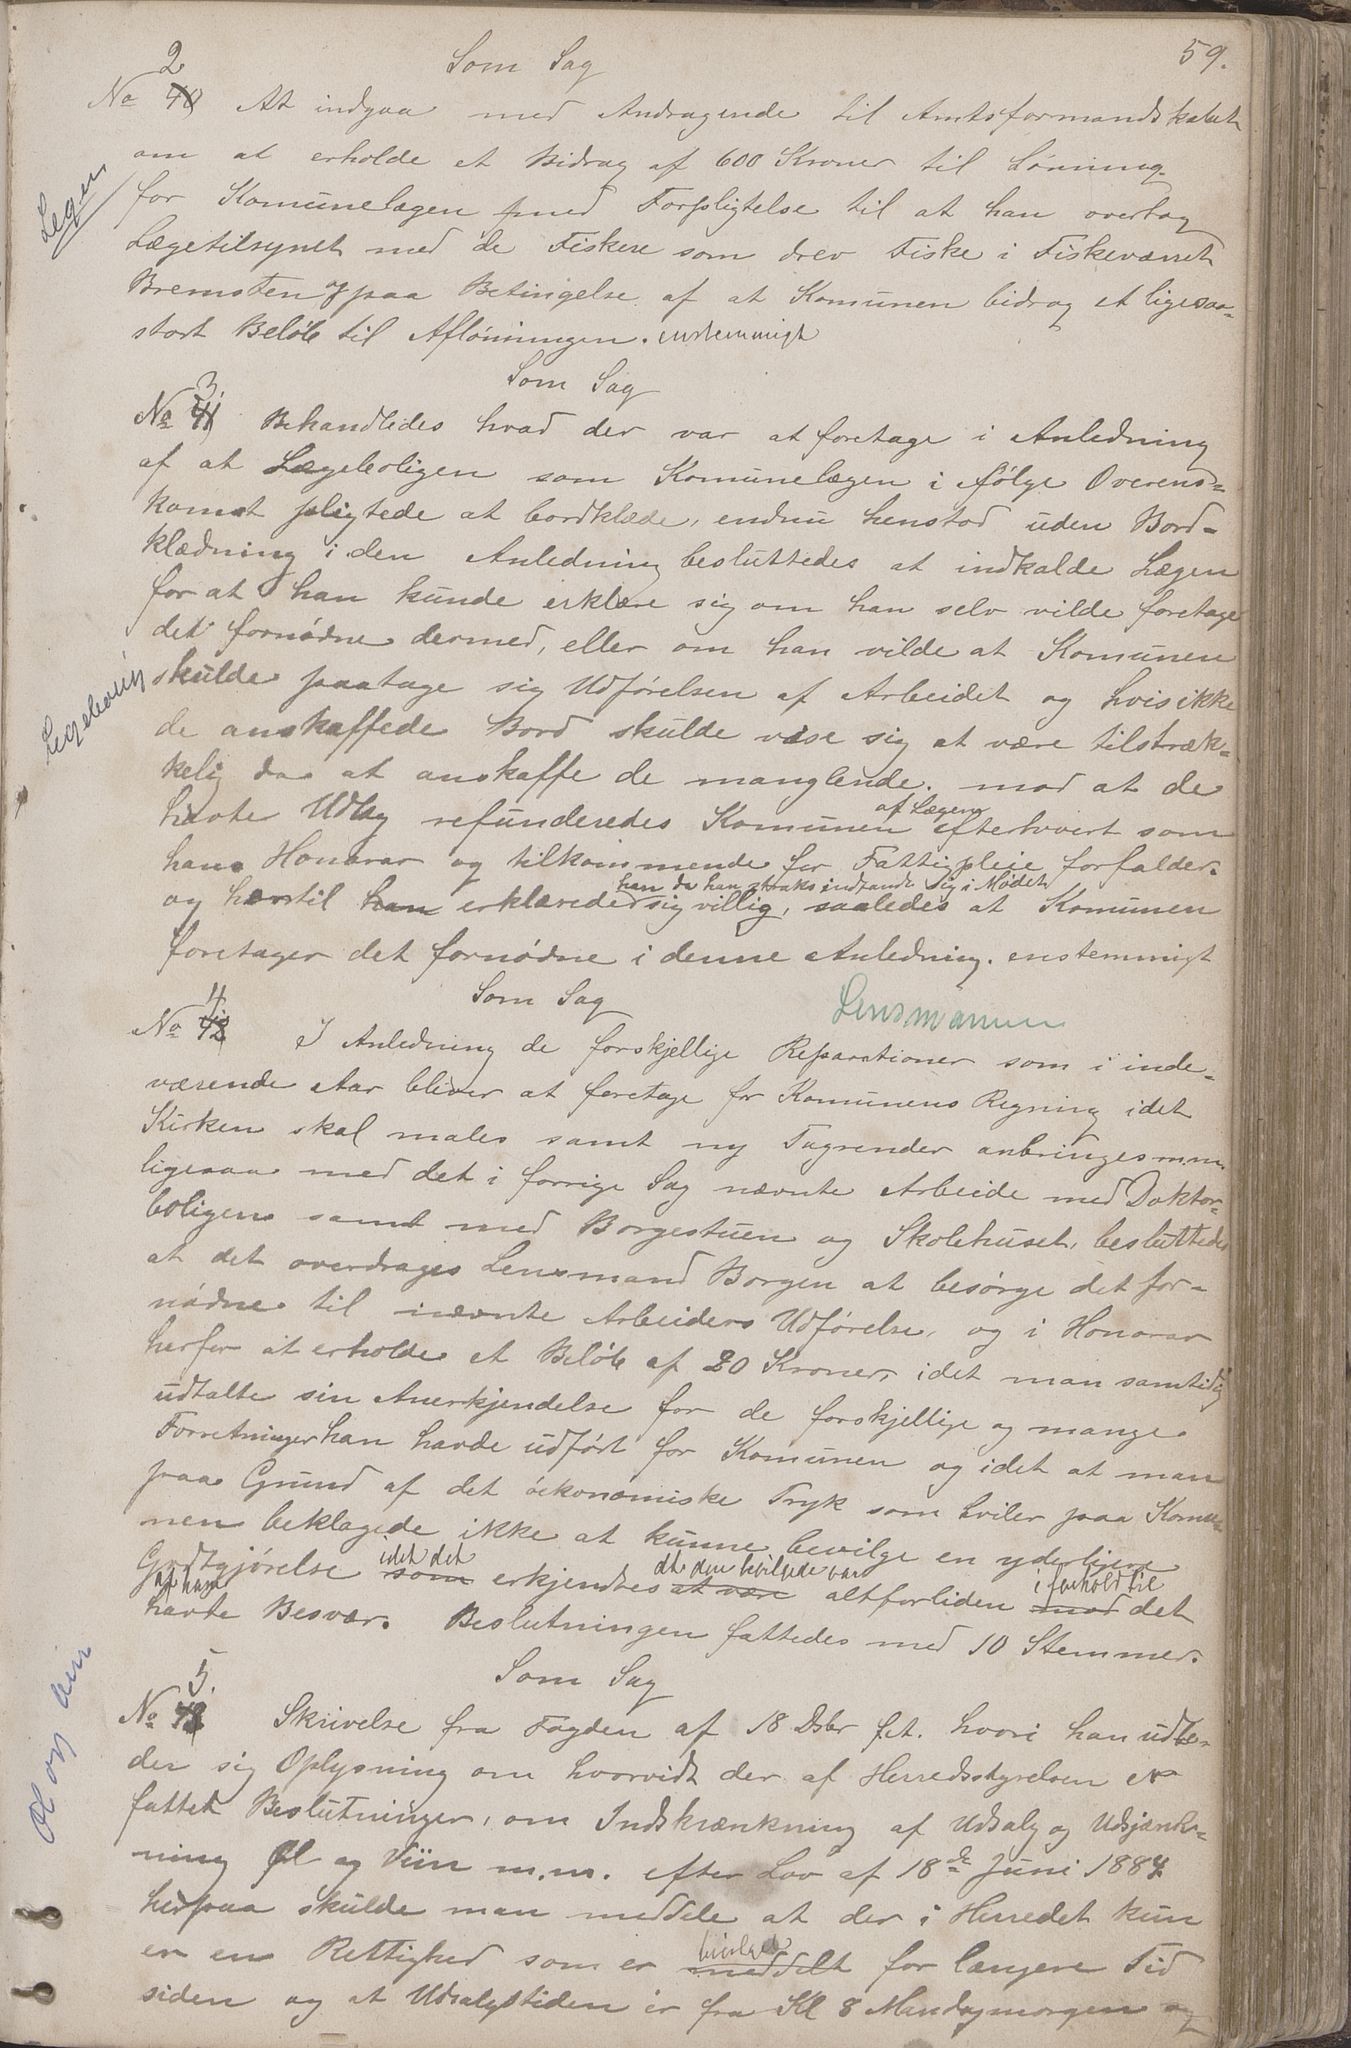 59.
Som Sag
2
No 40 At indgaa med Andragende til Amtsformandskabet
om at erholde et Bidrag af 600 Kroner til Lønning
for Komunelægen med Forpligtelse til at han overtog
Legen
Lægetilsynet med de Fiskere som drev Fiske i Fiskeværret
Bremsten og paa Betingelse af at Komunen bidrog et ligesaa-
stort Beløb til Aflønningen. enstemmigt
Som Sag
3.
No 41 Behandledes hvad der var at foretage i Anledning
af at Lægeboligen som Komunelægen i følge Overens-
komst pligtede at bordklæde, endnu henstod uden Bord-
klædning i den Anledning besluttedes at indkalde Lægen
for at han kunde erklære sig om han selv vilde foretage
det fornødne dermed, eller om han vilde at Komunen
Legebolig
skulde paatage sig Udførelsen af Arbeidet og hvis ikke
de anskaffede Bord skulde vise sig at være tilstræk-
kelig da at anskaffe de manglende. mod at de
havte Udlæg refunderedes Komunen af Lægen efterhvert som
hans Honorar og tilkommende for Fattigpleie forfalder.
han da han straks indfandt sig i Mødet
og hertil han erklærede sig villig, saaledes at Komunen
foretager det fornødne i denne Anledning. enstemmigt
Som Sag
Lensmannen
4
No 42 I Anledning de forskjellige Reparationer som i inde-
værende Aar bliver at foretage for Komunens Regning idet
Kirken skal males samt ny Tagrender anbringes m.m.
ligesaa med det i forrige Sag nævnte Arbeide med Doktor-
boligen samt med Borgestuen og Skolehuset, besluttedes
at det overdrages Lensmand Borgen at besørge det for-
nødne til nævnte Arbeiders Udførelse, og i Honorar
herfor at erholde et Beløb af 20 Kroner, idet man samtidig
udtalte sin Anerkjendelse for de forskjellige og mange
Forretninger han havde udført for Komunen og idet at man
paa Grund af det økonomiske Tryk som hviler paa Komu-
nen beklagede ikke at kunne bevilge en yderligere
idet det at den bevilgede var i forhold til
Godtgjørelse som erkjendtes at være altforliden mod det
af ham
havte Besvær. Beslutningen fattedes med 10 Stemmer.
Som Sag
5.
Øl og vin
No 43 Skrivelse fra Fogden af 18 Dsbr f.A. hvori han udbe-
der sig Oplysning om hvorvidt der af Herredsstyrelsen er
fattet Beslutninger, om Indskrænkning af Udsalg og Udsjænk-
ning Øl og Viin m.m. efter Lov af 18de Juni 1884
herpaa skulde man meddele at der i Herredet kun
er en Rettighed som er bevilget meddelt for længere Tid
siden og at Udsalgstiden er fra Kl 8 Mandagmorgen og